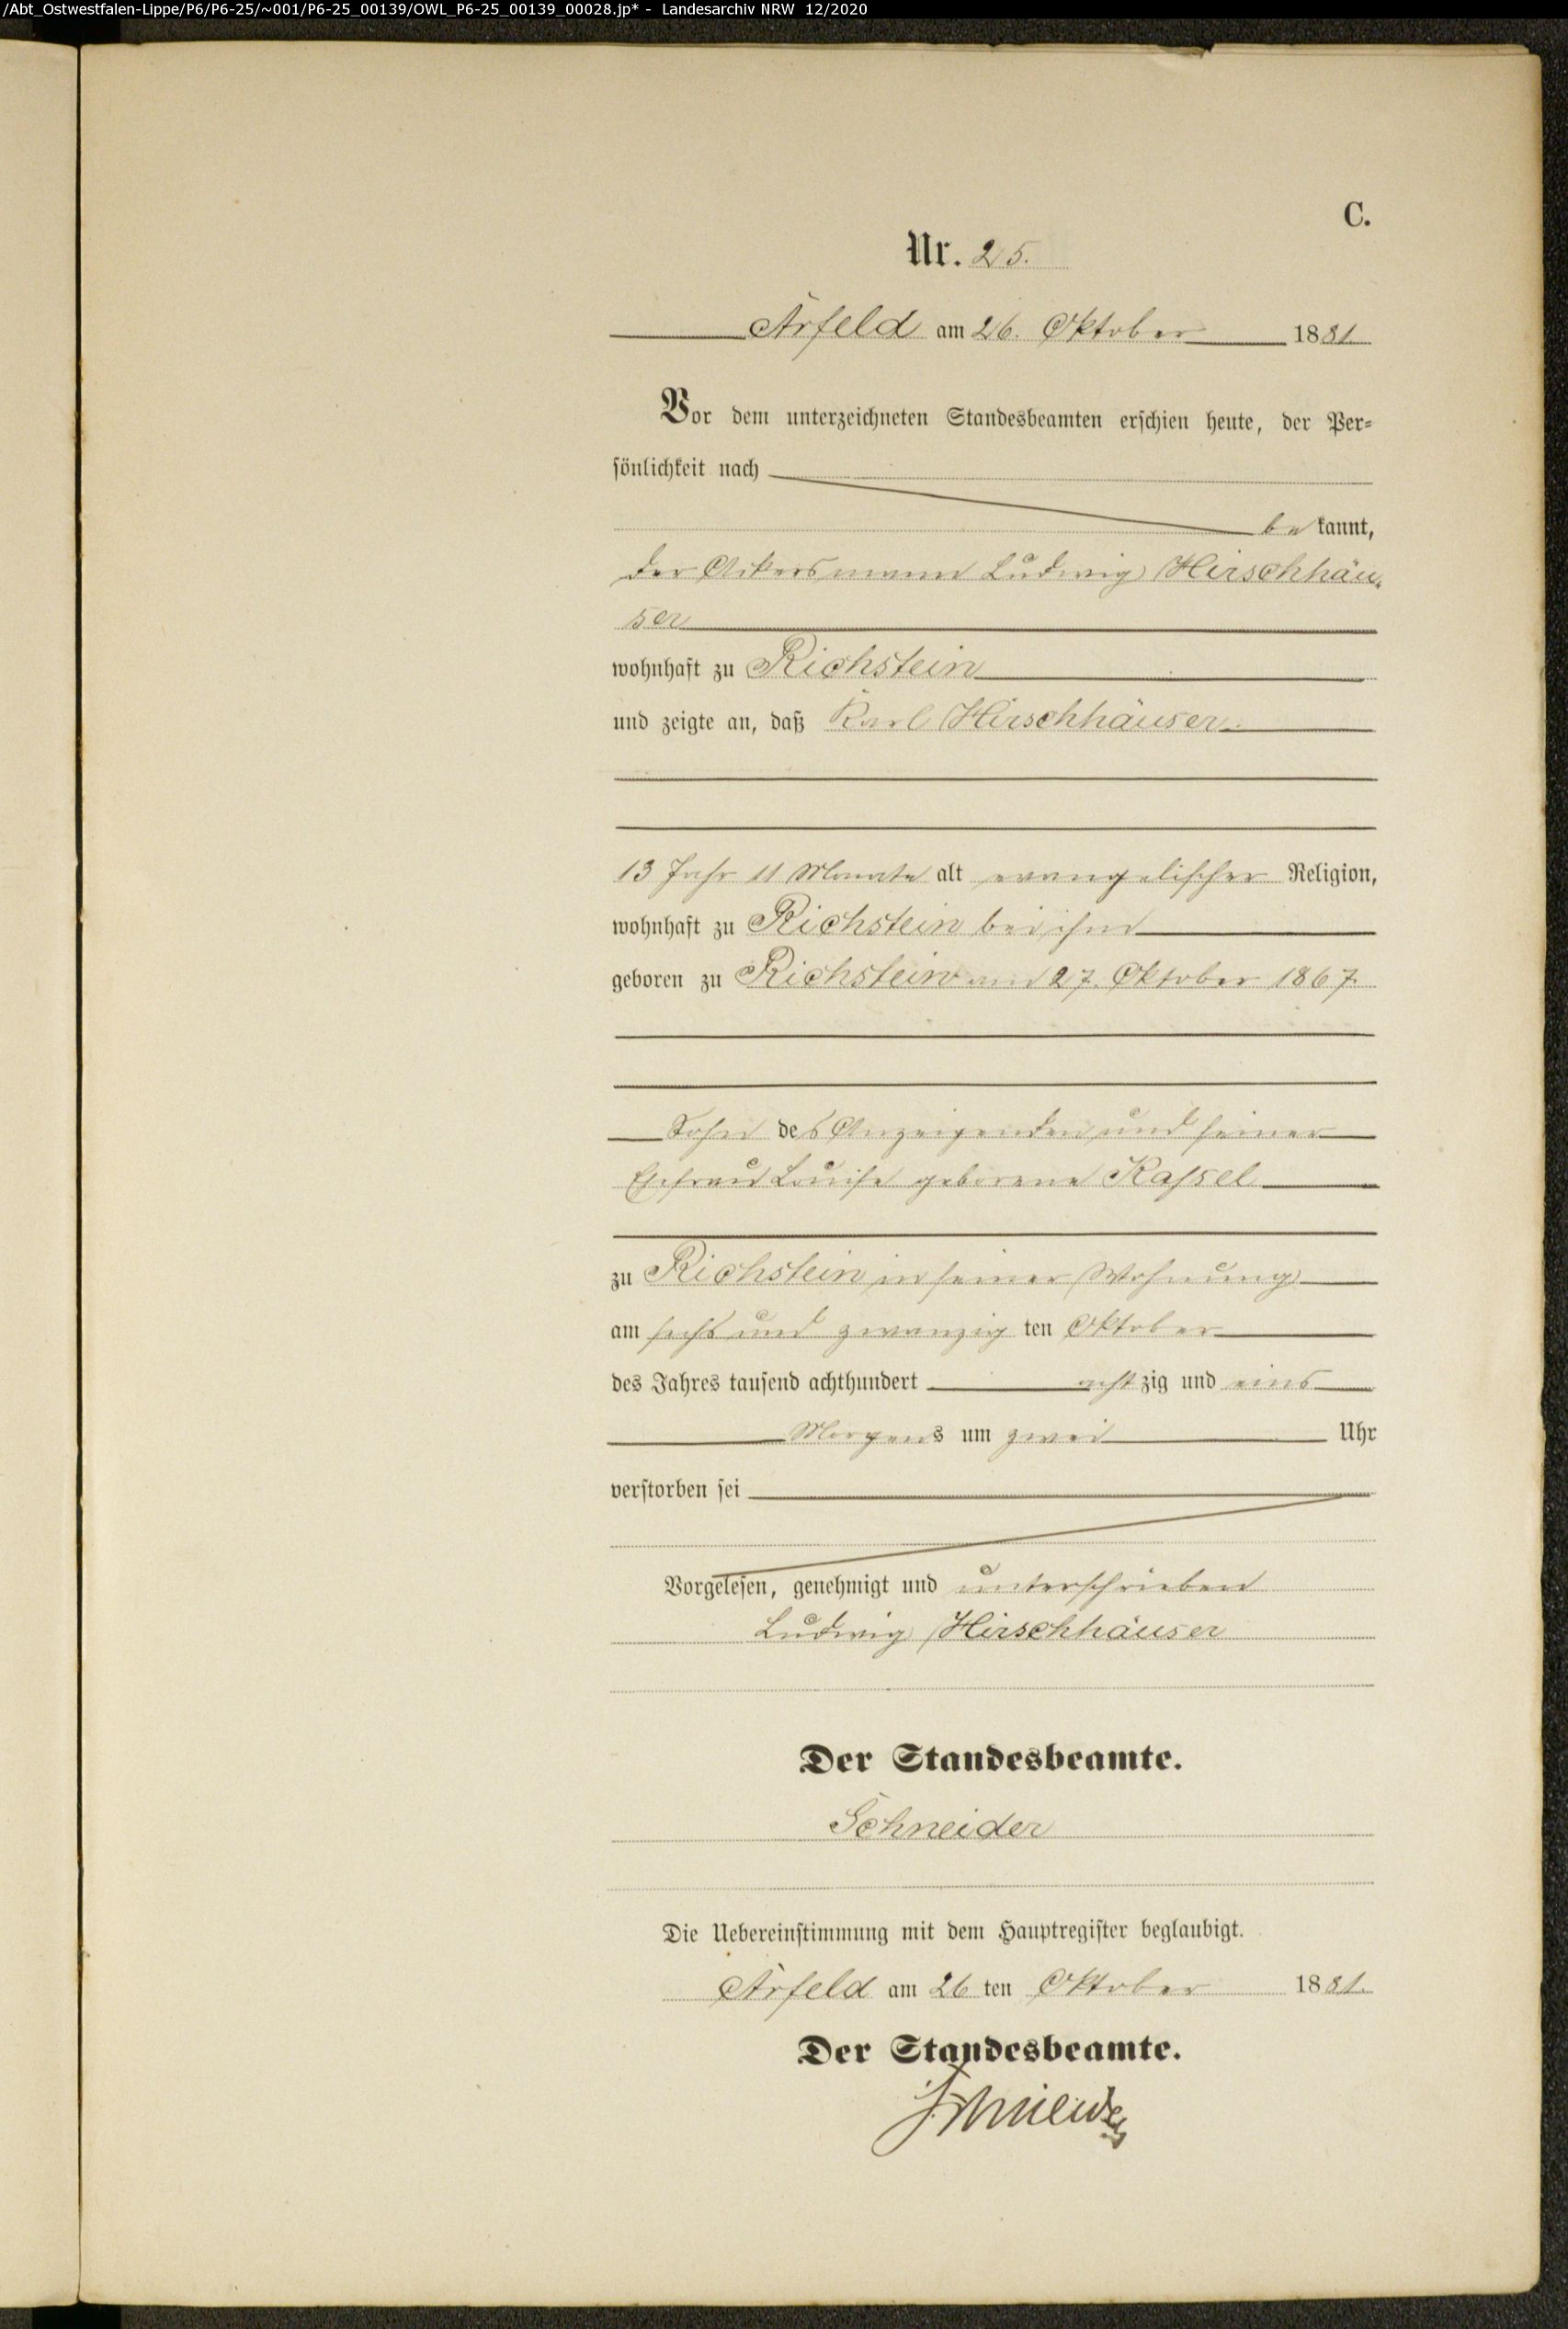 /Abt_Ostwestfalen-Lippe/P6/P6-25/~001/P6-25_00139/OWL_P6-25_00139_00028.jp* - Landesarchiv NRW 12/2020
C.
Nr. 25.
Arfeld am 26. Oktober 1881
Vor dem unterzeichneten Standesbeamten erschien heute, der Per=
sönlichkeit nach
be kannt,
der Ackersmann Ludwig Hirschhäu,
ser
wohnhaft zu Richstein
und zeigte an, daß Karl Hirschhäuser
13 Jahr 11 Monate alt evangelischer Religion,
wohnhaft zu Richstein bei ihm
geboren zu Richstein am 27. Oktober 1867.
Sohn des Anzeigenden und seiner
Ehefrau Louise geborene Kaſsel
zu Richstein in seiner Wohnung
am sechs und zwanzig ten Oktober
des Jahres tausend achthundert acht zig und eins
Morgens um zwei Uhr
verstorben sei
Vorgelesen, genehmigt und unterschrieben
Ludwig Hirschhäuser
Der Standesbeamte.
Schneider
Die Uebereinstimmung mit dem Hauptregister beglaubigt.
Arfeld am 26 ten Oktober 1881.
Der Standesbeamte.
Schneider